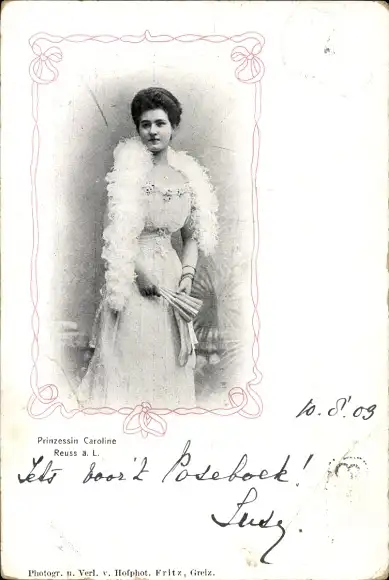 Prinzessin Caroline
Reuss ä. L.
10. 8' 03
Iets voor 't Poseboek!
Susy.
Photogr. u. Verl. v. Hofphot. Fritz, Greiz.